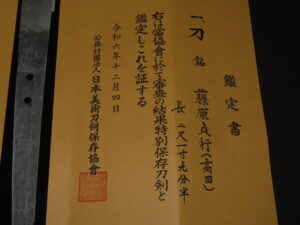 鑑定書
一、刀 銘 藤原貞行(高田)
長 二尺一寸九分半
右は當協會に於て審査の結果特別保存刀剣と
鑑定しこれを証する
令和六年十二月四日
公益財團法人日本美術刀剣保存協會